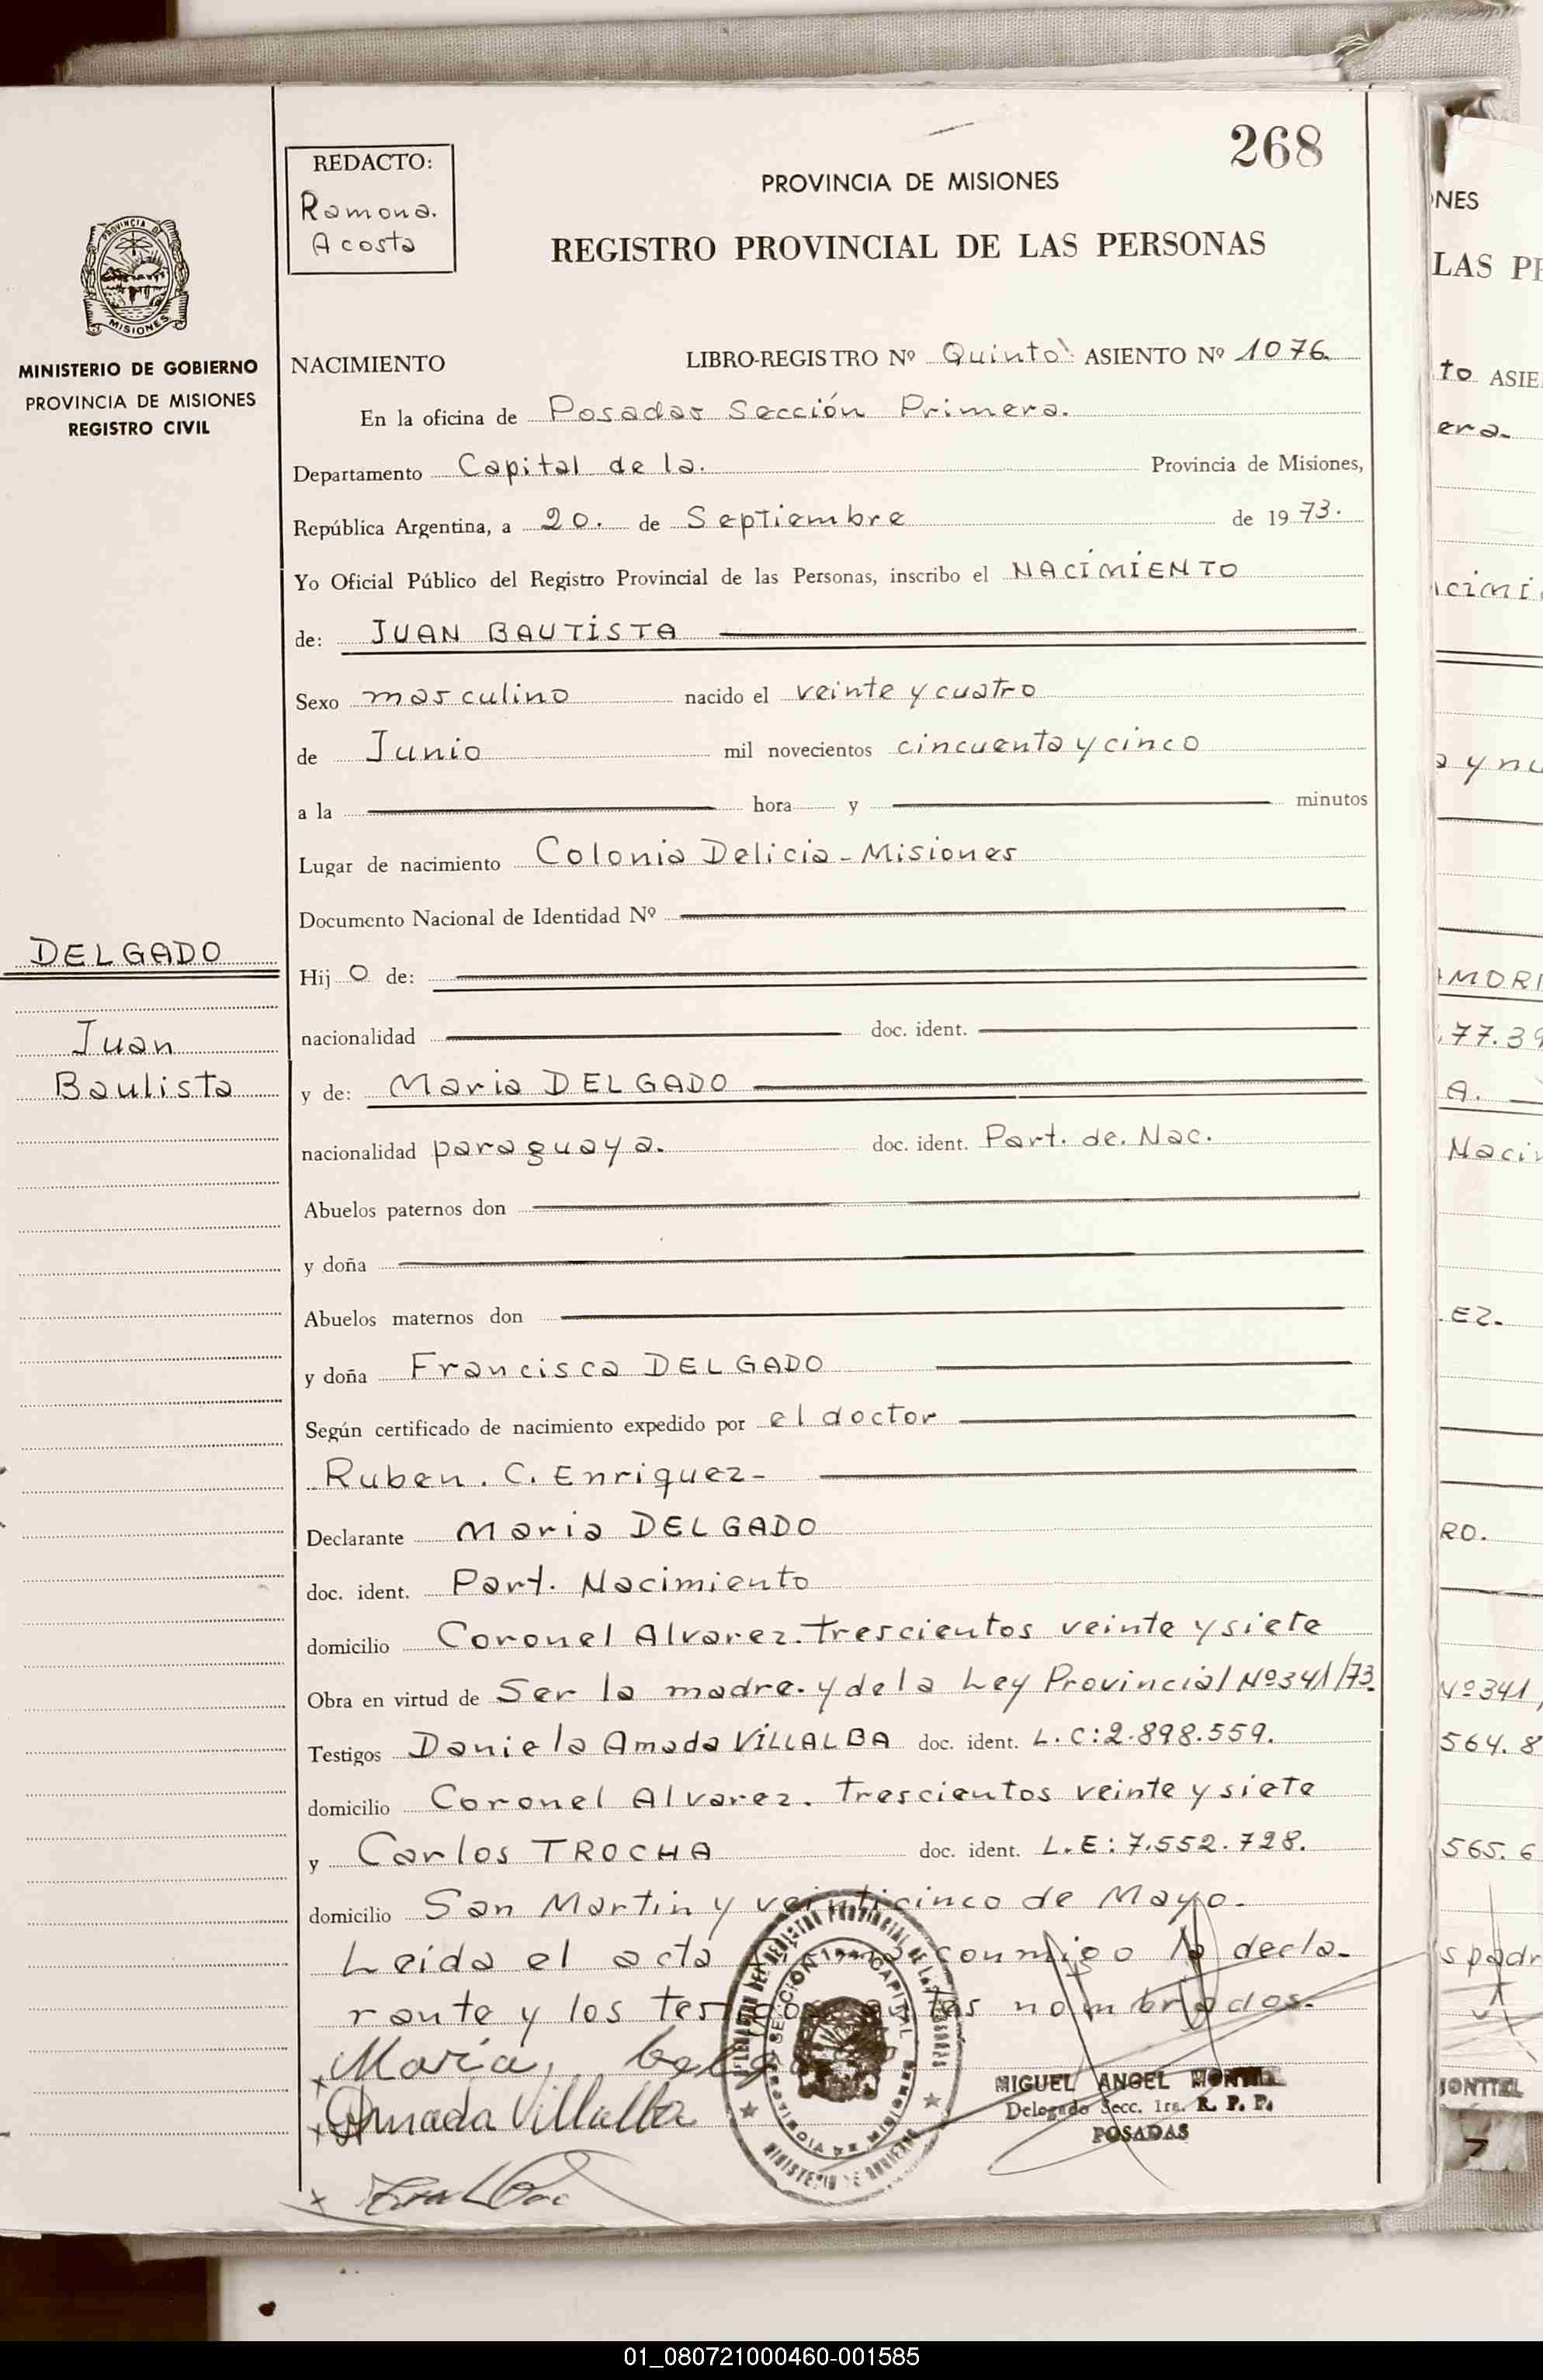 268
REDACTO:
Ramona.
Acosta
PROVINCIA DE MISIONES
REGISTRO PROVINCIAL DE LAS PERSONAS
PROVINCIA DE
MISIONES
MINISTERIO DE GOBIERNO
PROVINCIA DE MISIONES
REGISTRO CIVIL
NACIMIENTO LIBRO-REGISTRO Nº Quinto ASIENTO Nº 1076.
En la oficina de Posadas Sección Primera.
Departamento Capital de la. Provincia de Misiones,
República Argentina, a 20. de Septiembre de 1973.
Yo Oficial Público del Registro Provincial de las Personas, inscribo el NACIMIENTO
de: JUAN BAUTISTA
Sexo masculino nacido el veinte y cuatro
de Junio mil novecientos cincuenta y cinco
a la hora y minutos
Lugar de nacimiento Colonia Delicia - Misiones
Documento Nacional de Identidad Nº
DELGADO
Juan
Bautista
Hijo de:
nacionalidad doc. ident.
y de: Maria DELGADO
nacionalidad paraguaya. doc. ident. Part. de. Nac.
Abuelos paternos don
y doña
Abuelos maternos don
y doña Francisca DELGADO
Según certificado de nacimiento expedido por el doctor
Ruben. C. Enriquez-
Declarante Maria DELGADO
doc. ident. Part. Nacimiento
domicilio Coronel Alvarez. trescientos veinte y siete
Obra en virtud de Ser la madre. y de la Ley Provincial Nº 341/73.
Testigos Daniela Amada VILLALBA doc. ident. L.C:2.898.559.
domicilio Coronel Alvarez. Trescientos veinte y siete
y Carlos TROCHA doc. ident. L.E:7.552.728.
domicilio San Martin y veinticinco de Mayo.
Leida el acta conmigo la decla-
rante y los testigos antes nombrados.
Maria,
Amada Villalba
MIGUEL ANGEL
Delegado Secc. 1ra. R. P. P.
POSADAS
NES
LAS PE
to ASIE
era.
cimi
a y nu
MORI
.77.39
A.
Naci
EZ.
RO.
Nº 341
564.8
565.6
spadr
01_080721000460-001585